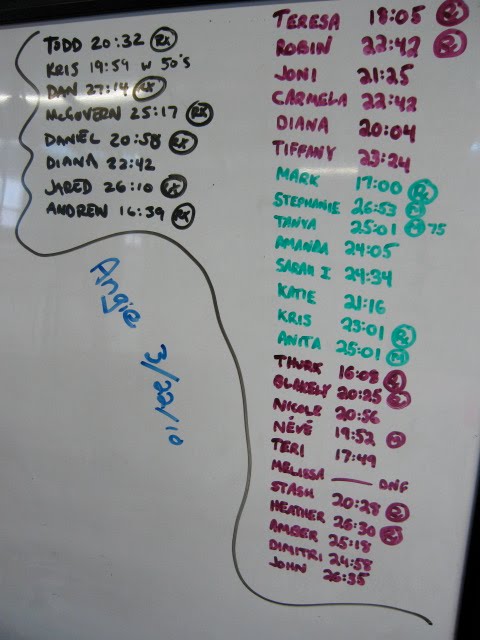 TODD 20:32 RX
KRIS 19:59 W 50'S
DAN 27:14 RX
McGOVERN 25:17 RX
DANIEL 20:58 RX
DIANA 22:42
JARED 26:10 RX
ANDREW 16:39 RX
Angie 3/23/10
TERESA 18:05 RX
ROBIN 22:42 RX
JONI 21:25
CARMELA 22:42
DIANA 20:04
TIFFANY 23:24
MARK 17:00 RX
STEPHANIE 26:53 M
TANYA 25:01 M 75
AMANDA 24:05
SARAH I 24:34
KATIE 21:16
KRIS 23:01 RX
ANITA 25:01 M
THURK 16:08
BLAKELY 20:25
NICOLE 20:56
NÉVÉ 19:52
TERI 17:49
MELISSA —— DNF
STASH 20:28 RX
HEATHER 26:30 RX
AMBER 25:18
DIMITRI 24:58
JOHN 26:35